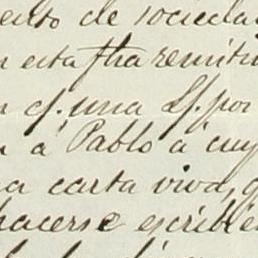 de socieda
n esta fha remitir
una Lf. por
a á Pablo á cuy
na carta viva, q
hacerse escribié